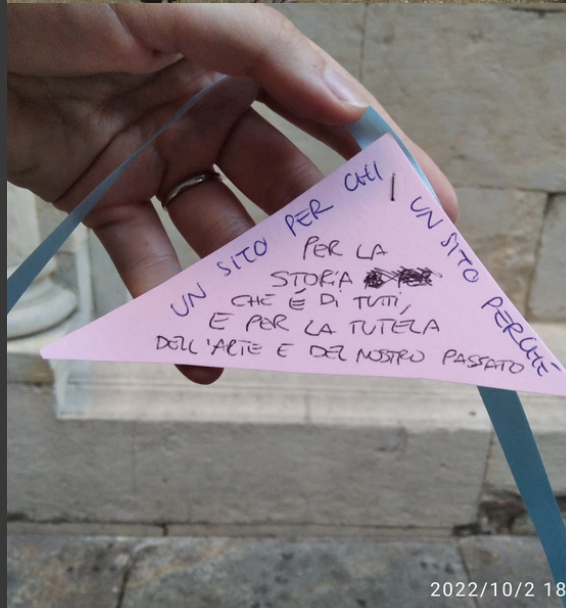 UN SITO PER CHI
UN SITO PERCHÉ
PER LA
STORIA
CHE É DI TUTTI,
E PER LA TUTELA
DELL'ARTE E DEL NOSTRO PASSATO
2022/10/2 18